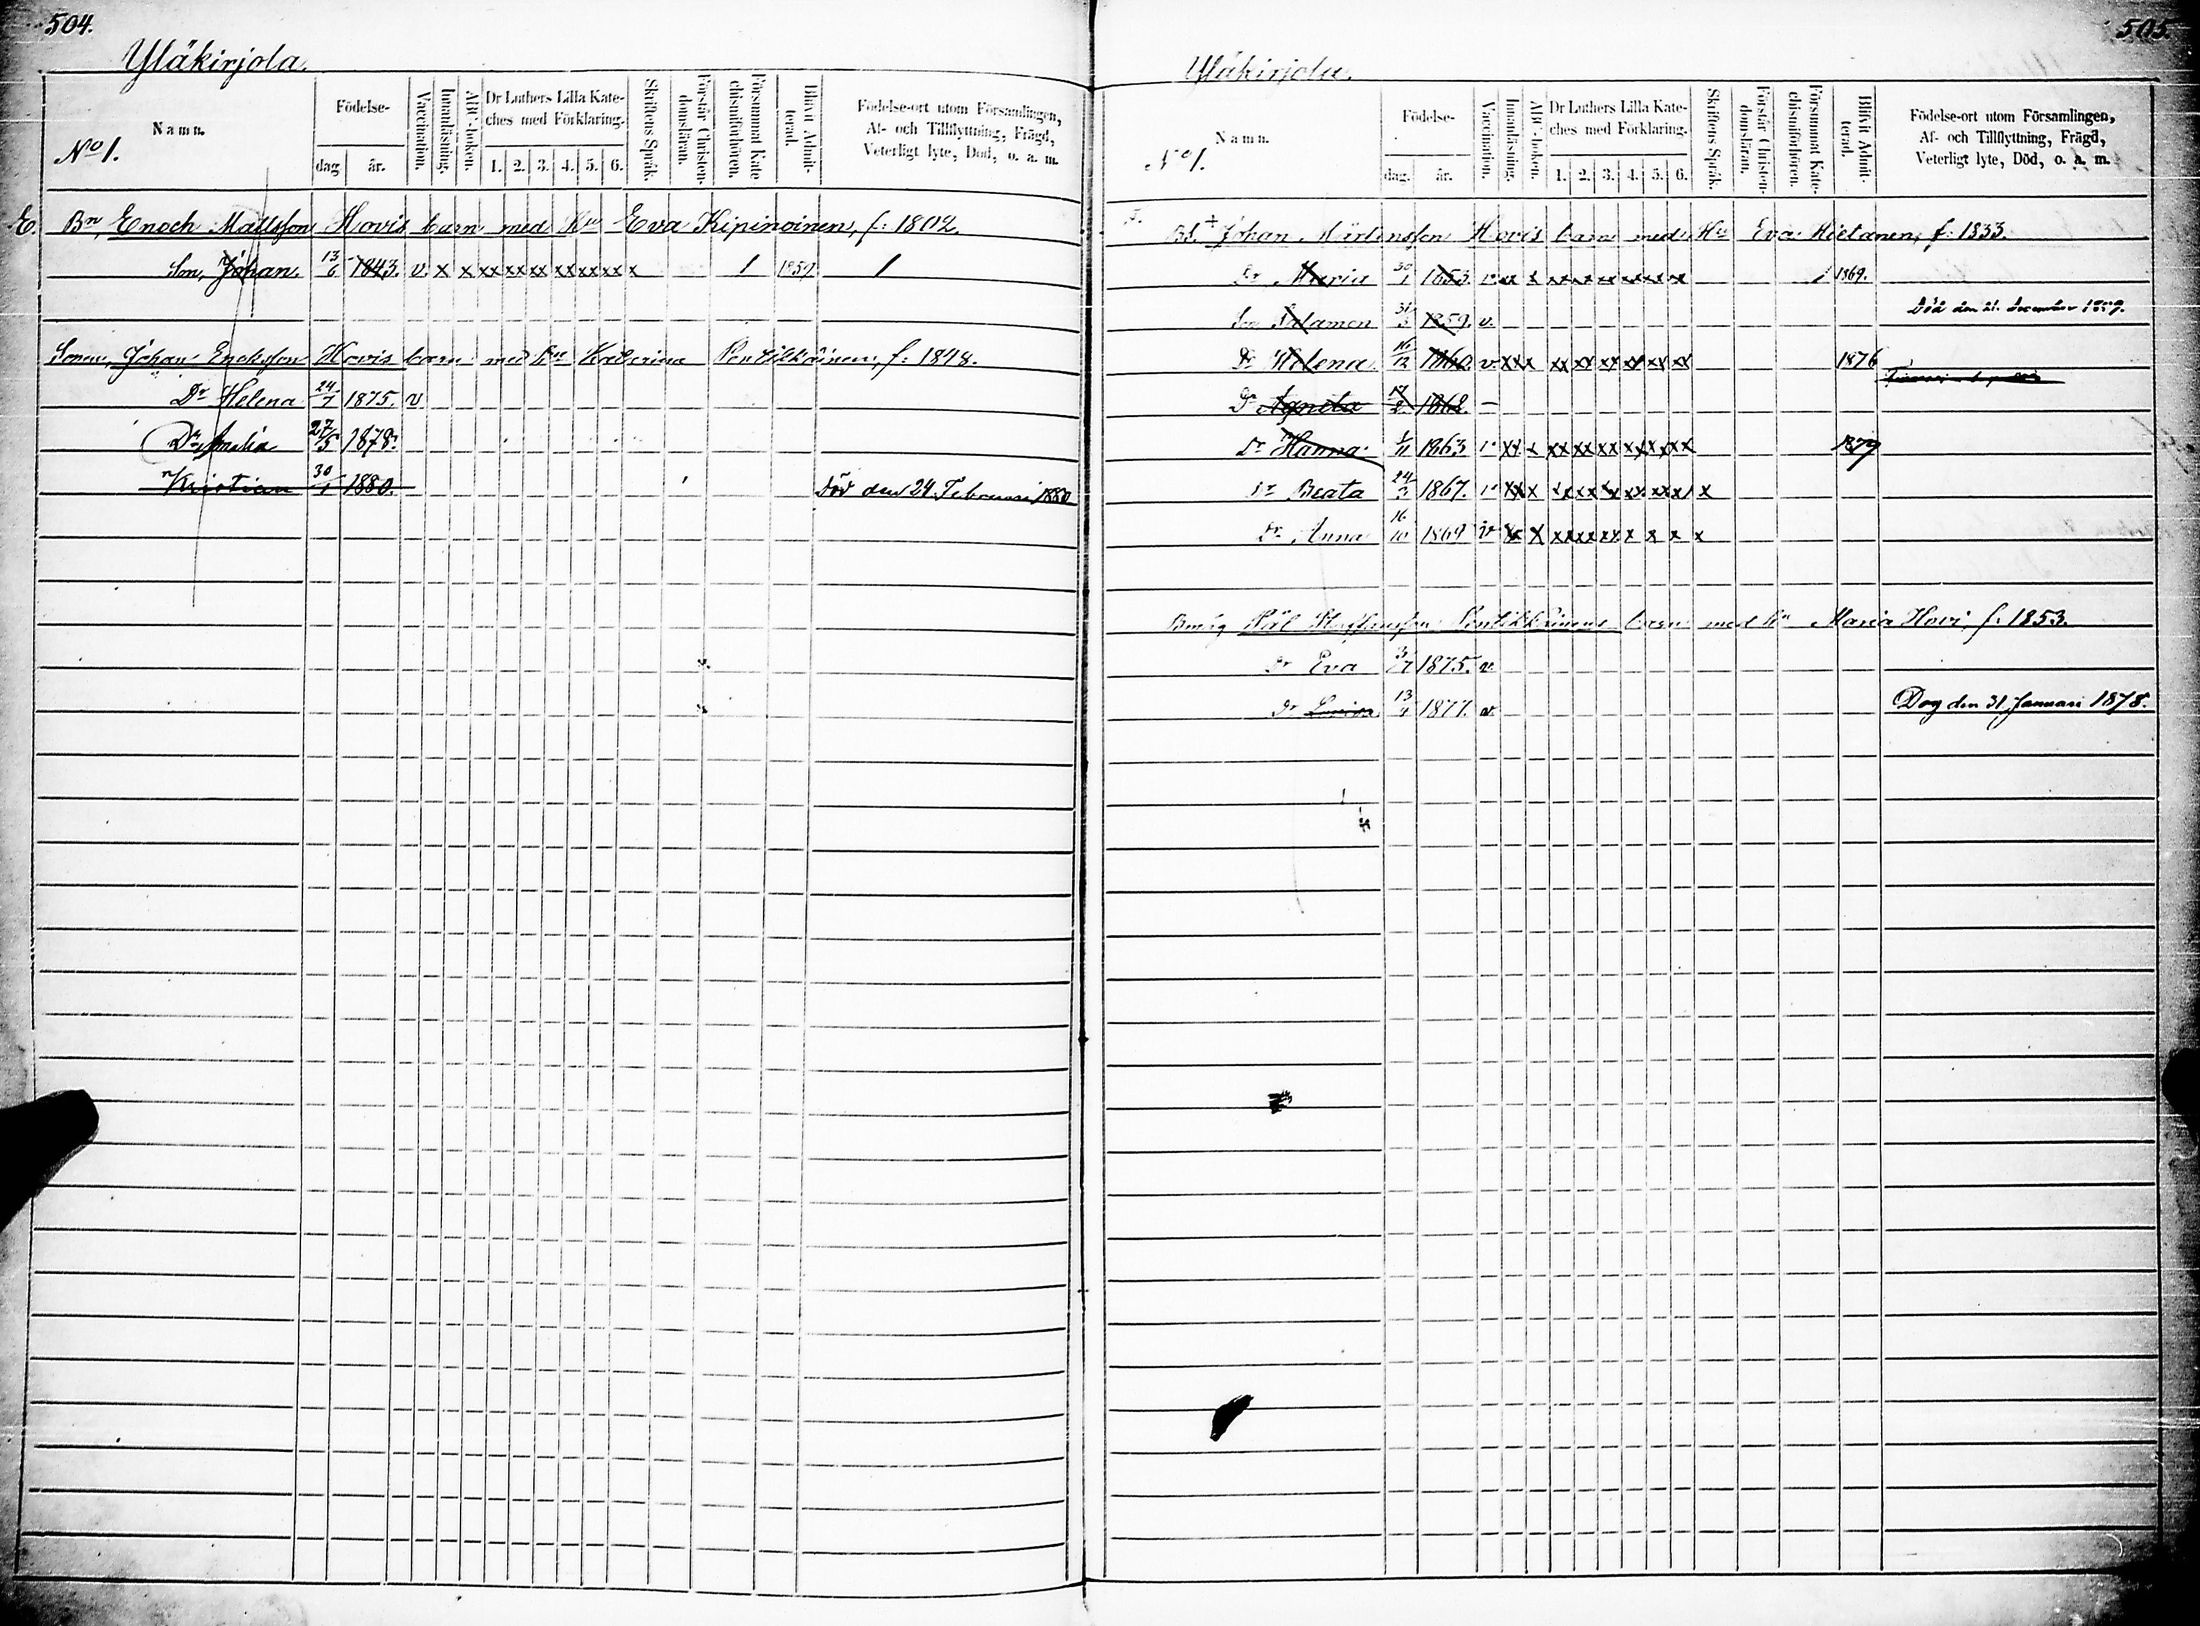 504.
Yläkirjola.
Namn.
No 1.
Födelse-
dag
år.
Vaccination.
Innanläsning.
ABC-boken.
Dr Luthers Lilla Kate-
ches med Förklaring.
1. 2. 3. 4. 5. 6.
Skriftens Språk.
Förstår Christen-
domsläran.
Försummat Kate-
chismiförhören.
Blifvit Admit-
terad.
Födelse-ort utom Församlingen,
Af- och Tillflyttning, Frägd,
Veterligt lyte, Död, o. a. m.
E. Bn, Enoch Mattsson Hovis barn med Hu Eva Kipinoinen, f. 1802.
Son, Johan. 13/6 1843. v. x x xx xx xx xx xx xx x 1 1859 1
Sonen, Johan Enoksson Hovis barn med Hu Katarina Pentikkäinen, f. 1848.
Dr Helena 24/7 1875. v
Dr Amalia 27/5 1878.
Kristian 30/1 1880. Död den 24 Februari 1880
505.
Yläkirjola.
Namn.
No 1.
Födelse-
dag.
år.
Vaccination.
Innanläsning.
ABC-boken.
Dr Luthers Lilla Kate-
ches med Förklaring.
1. 2. 3. 4. 5. 6.
Skriftens Språk.
Förstår Christen-
domsläran.
Försummat Kate-
chismiförhören.
Blifvit Admit-
terad.
Födelse-ort utom Församlingen,
Af- och Tillflyttning, Frägd,
Veterligt lyte, Död, o. a. m.
Bd. + Johan Mårtensson Hovis barn med Hu Eva Hietanen, f. 1833.
Dr Maria 30/1 1853. v x x xx xx xx xx xx x 1 1869.
Son Salamon 31/3 1859. v. Död den 21. December 1859.
Dr Helena 16/12 1860. v. xx x xx xx xx xx xx xx 1876
Dr Agneta 17/2 1862. –
Dr Hanna 1/11 1863 v xx x xx xx xx xx xx xx 1879
Dr Beata 24/3 1867. v xx x xx xx xx xx xx xx x
Dr Anna 16/10 1869 v x x xx xx xx x x x x
Pål Staffansson Pentikkäinens barn med Hu Maria Hovi, f. 1853.
Dr Eva 3/7 1875. v.
Dr Lovisa 13/9 1877. v. Dog den 31 Januari 1878.